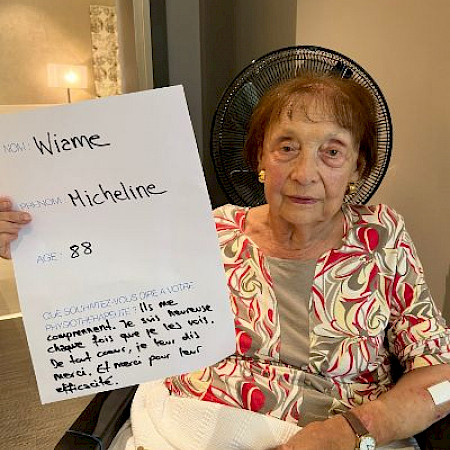 NOM: Wiame
PRÉNOM: Micheline
AGE: 88
QUE SOUHAITEZ-VOUS DIRE À VOTRE
PHYSIOTHÉRAPEUTE? Ils me
comprennent. Je suis heureuse
chaque fois que je les vois.
De tout coeur, je leur dis
merci. Et merci pour leur
efficacité.